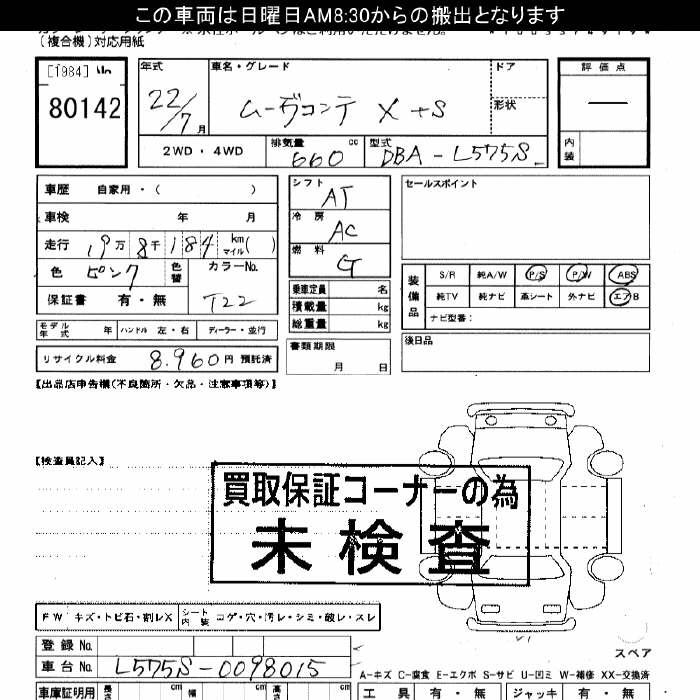 この車両は日曜日AM8:30からの搬出となります
(複合機)対応用紙
[1984]
80142
年式
22/7月
車名・グレード
ムーヴコンテ X+S
ドア
形状
評価点
内装
2WD・4WD
排気量
660 cc
型式
DBA-L575S
車歴 自家用・( )
車検 年 月
走行 19万8千184 km マイル( )
色 ピンク
色替
カラーNo.
T22
保証書 有・無
シフト AT
冷房 AC
燃料 G
乗車定員 名
積載量 kg
総重量 kg
セールスポイント
装備品
S/R 純A/W P/S P/W ABS
純TV 純ナビ 革シート 外ナビ エアB
ナビ型番:
モデル年式 年 ハンドル 左・右 ディーラー・並行
リサイクル料金 8,960円 預託済
書類期限
月 日
後日品
【出品店申告欄(不良箇所・欠品・注意事項等)】
【検査員記入】
買取保証コーナーの為
未検査
FW キズ・トビ石・割レX
シート内装 コゲ・穴・汚レ・シミ・破レ・スレ
登録No.
車台No. L575S-0098015
スペア
A-キズ C-腐食 E-エクボ S-サビ U-凹ミ W-補修 XX-交換済
車庫証明用 長さ cm 幅 cm 高さ cm
工具 有・無 ジャッキ 有・無